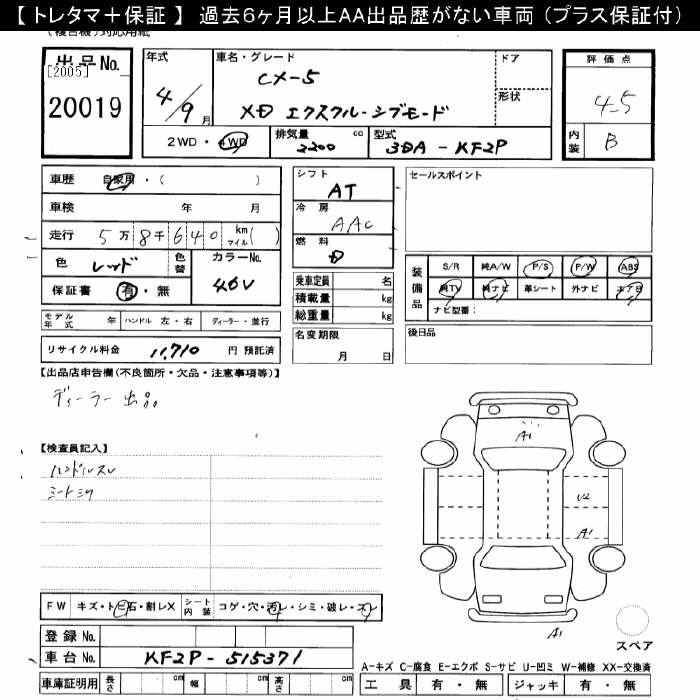 【トレタマ＋保証】 過去6ヶ月以上AA出品歴がない車両（プラス保証付）
出品No.
[2005]
20019
年式
4/9月
車名・グレード
CX-5
XD エクスクルーシブモード
ドア
形状
評価点
4.5
内装
B
2WD・4WD
排気量
2200 cc
型式
3DA-KF2P
車歴 自家用・（ ）
車検 年 月
走行 5万8千640 km マイル( )
色 レッド 色替
カラーNo.
46V
保証書 有・無
モデル年式 年 ハンドル 左・右 ディーラー・並行
リサイクル料金 11,710 円 預託済
シフト
AT
冷房
AAC
燃料
D
乗車定員 名
積載量 kg
総重量 kg
名変期限
月 日
セールスポイント
装備品
S/R 純A/W P/S P/W ABS
純TV 純ナビ 革シート 外ナビ エアB
ナビ型番：
後日品
【出品店申告欄(不良箇所・欠品・注意事項等)】
ディーラー出品
【検査員記入】
ハンドルスレ
シートシワ
A1
U2
A1
A1
スペア
FW キズ・トビ石・割レX シート内装 コゲ・穴・汚レ・シミ・破レ・スレ
登録No.
車台No. KF2P-515371
車庫証明用 長さ cm 幅 cm 高さ cm
A-キズ C-腐食 E-エクボ S-サビ U-凹ミ W-補修 XX-交換済
工具 有・無 ジャッキ 有・無